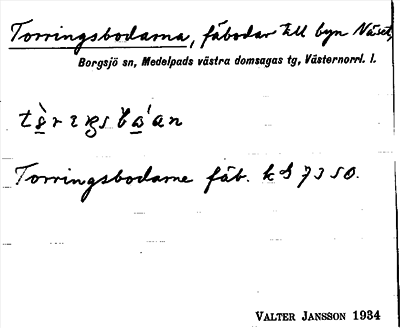 Torringsbodarna, fäbodar till byn Näset,
Borgsjö sn, Medelpads västra domsagas tg, Västernorrl. l.
Torringsbodarne fäb. k d 7350.
VALTER JANSSON 1934